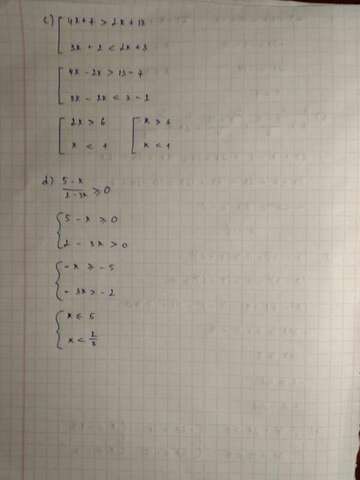 c) [ 4x+7 > 2x+13
3x + 2 < 2x+3
[ 4x - 2x > 13 - 7
3x - 2x < 3 - 2
[ 2x > 6 [ x >
x < 1 x < 1
d) 5 - x / 2 - 3x ≥ 0
{ 5 - x ≥ 0
2 - 3x > 0
{ -x ≥ - 5
- 3x > - 2
{ x ≤ 5
x < 2/3